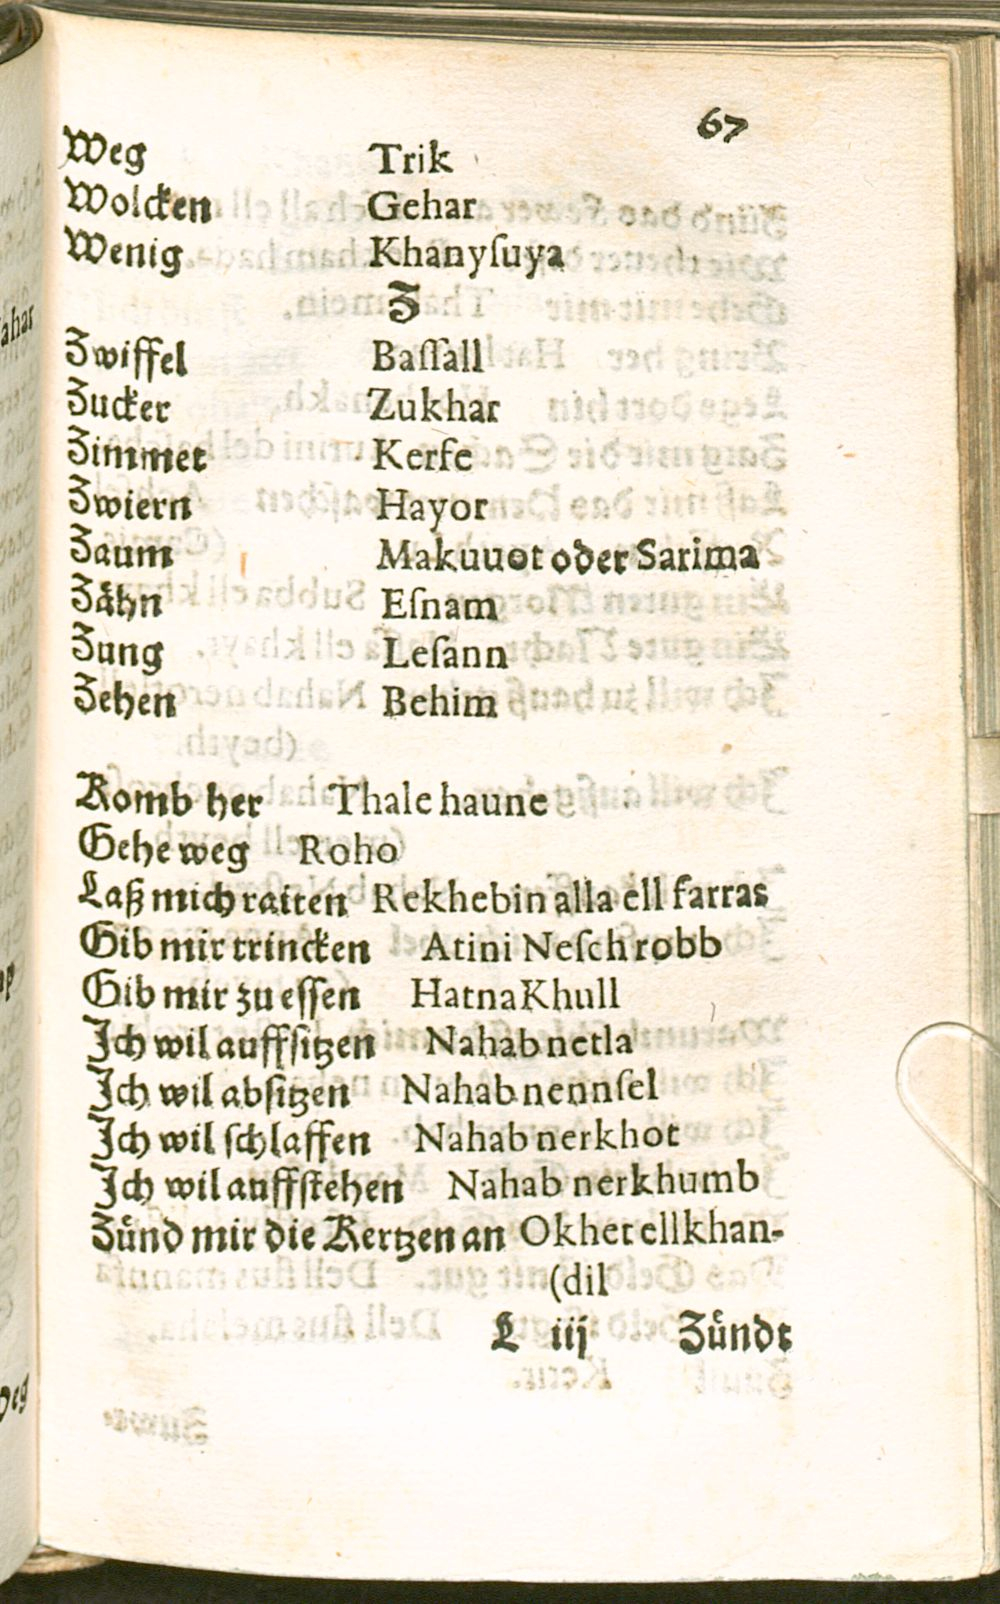 67
Weg Trik
Wolcken Gehar
Wenig Khanyſuya
Z
Zwiffel Baſſall
Zucker Zukhar
Zimmet Kerfe
Zwiern Hayor
Zaum Makuuot oder Sarima
Zåhn Eſnam
Zung Leſann
Zehen Behim
Komb her Thale haune
Gehe weg Roho
Laß mich raiten Rekhebin alla ell farras
Gib mir trincken Atini Neſch robb
Gib mir zu eſſen Hatna Khull
Ich wil auffſitzen Nahab netla
Ich wil abſitzen Nahab nennſel
Ich wil ſchlaffen Nahab nerkhot
Ich wil auffſtehen Nahab nerkhumb
Zůnd mir die Kertzen an Okhet ellkhan-
(dil
L iij Zůndt